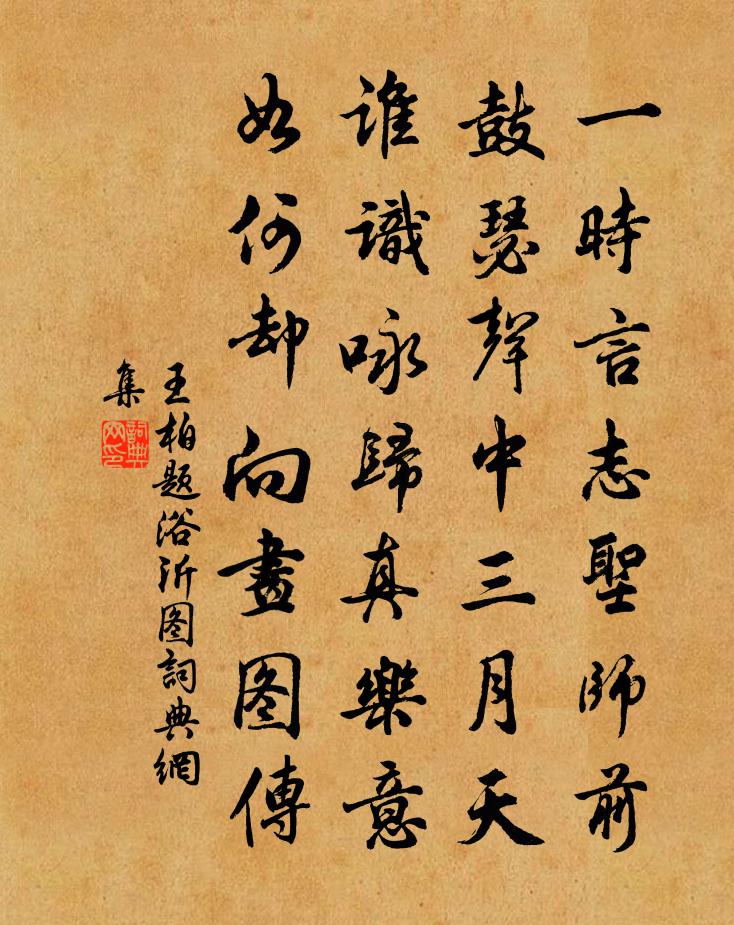 一時言志聖師前
鼓瑟聲中三月天
誰識咏歸真樂意
如何却向畫图傳
王柏題浴沂图詞典網
集
詞典网印